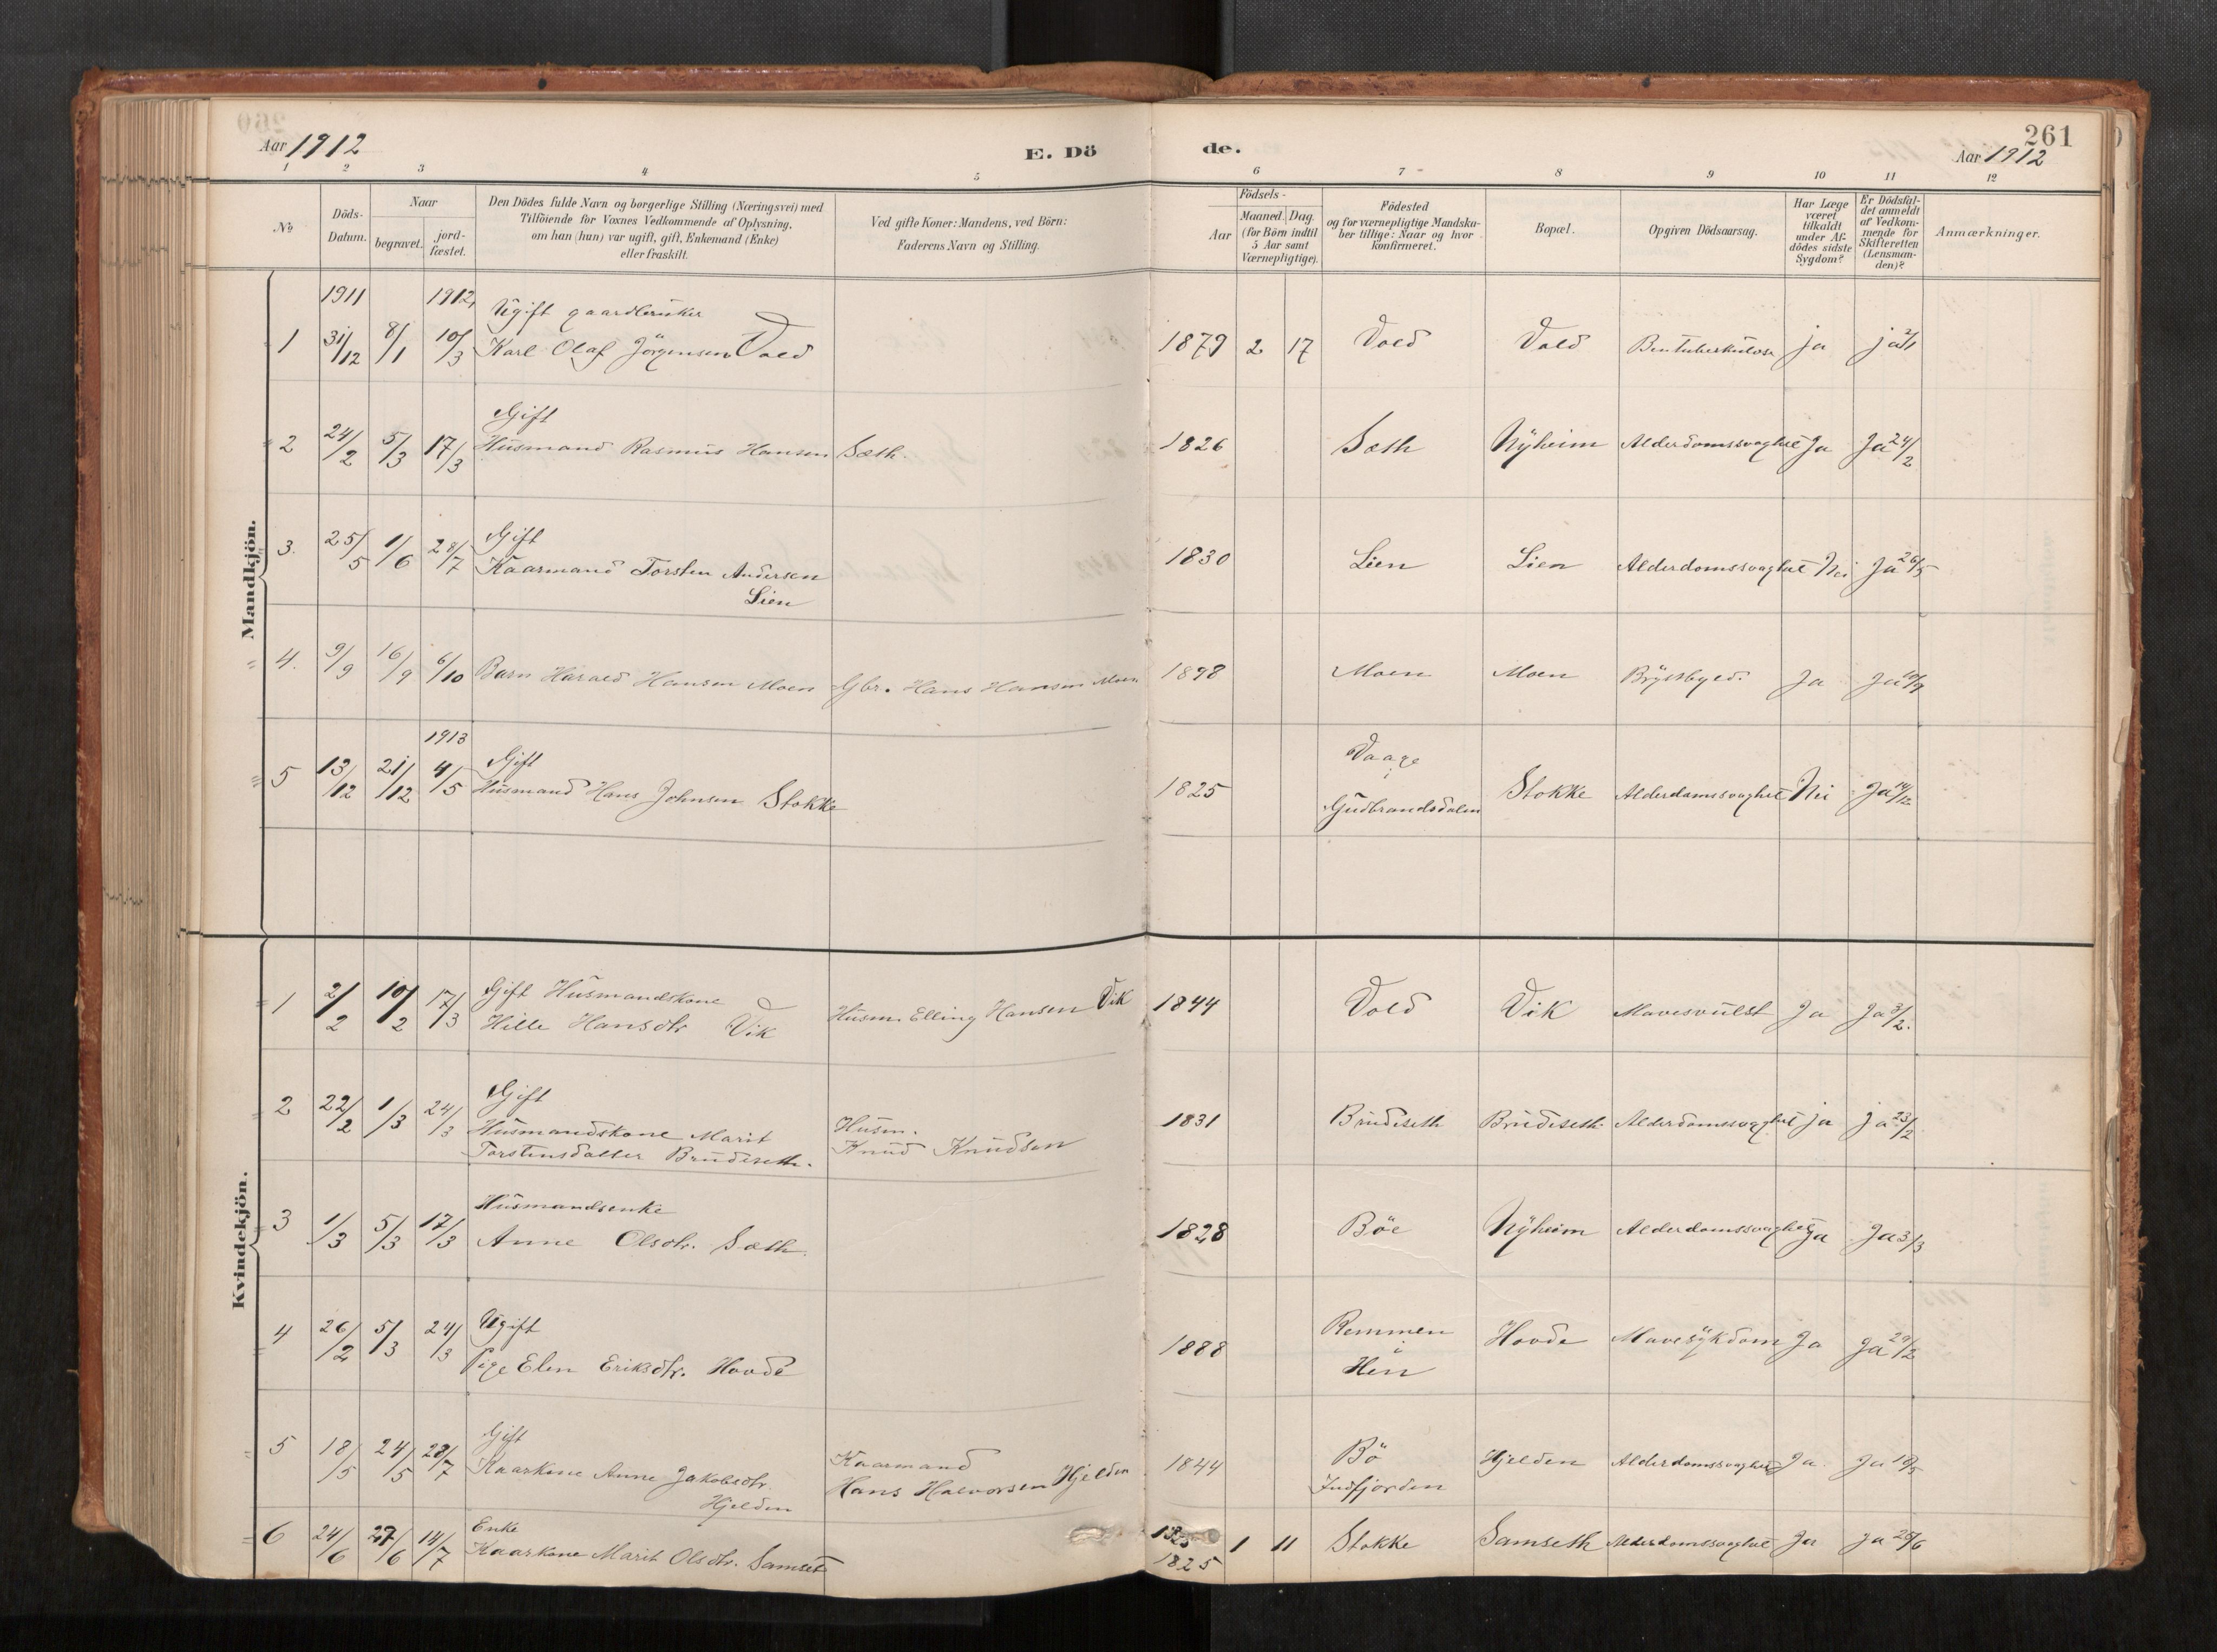 261
Aar 1912
E. Dö
de.
Aar 1912
1 2 3 4 5 6 7 8 9 10 11 12
No
Döds-
Datum.
Naar
begravet.
jord-
fæstet.
Den Dödes fulde Navn og borgerlige Stilling (Næringsvei) med
Tilföiende for Voxnes Vedkommende af Oplysning,
om han (hun) var ugift, gift, Enkemand (Enke)
eller fraskilt.
Ved gifte Koner: Mandens, ved Börn:
Faderens Navn og Stilling.
Födsels-
Aar
Maaned. Dag.
(for Börn indtil
5 Aar samt
Værnepligtige).
Födested
og for værnepligtige Mandska-
ber tillige: Naar og hvor
konfirmeret.
Bopæl.
Opgiven Dödsaarsag.
Har Læge
været
tilkaldt
under Af-
dödes sidste
Sygdom?
Er Dödsfal-
det anmeldt
af Vedkom-
mende for
Skifteretten
(Lensman-
den)?
Anmærkninger.
Mandkjön.
1911 1912
Ugift gaardbruker
1 31/12 8/1 10/3 Karl Olaf Jörgensen Vold 1879 2 17 Vold Vold Bentuberkulose ja ja 2/1
Gift
2 24/2 5/3 17/3 Husmand Rasmus Hansen Sæth. 1826 Sæth Nyheim Alderdomssvaghet Ja Ja 24/2
Gift
3. 25/5 1/6 28/7 Kaarmand Torsten Andersen 1830 Lien Lien Alderdomssvaghet Nei Ja 26/5
Lien
4. 9/9 16/9 6/10 Barn Harald Hansen Moen Gbr. Hans Hansen Moen 1898 Moen Moen Brystbyld. Ja Ja 10/9
1913
Gift
5 13/12 21/12 4/5 Husmand Hans Johnsen Stokke 1825 Vaage i Gudbrandsdalen Stokke Alderdomssvaghet Nei Ja 14/12
Kvindekjön.
Gift Husmandskone
1 2/2 10/2 17/3 Hille Hansdtr Vik Husm. Elling Hansen Vik 1844 Vold Vik Mavesvulst Ja Ja 3/2.
Gift
2 22/2 1/3 24/3 Husmandskone Marit Husm. 1831 Brudeseth Brudeseth Alderdomssvaghet ja ja 23/2
Torstensdatter Brudeseth. Knud Knudsen
Husmandsenke
3 1/3 5/3 17/3 Anne Olsdtr. Sæth. 1828 Böe Nyheim Alderdomssvaghet Ja Ja 3/3
Ugift
4 26/2 5/3 24/3 Pige Elen Eriksdtr. Hovde 1888 Remmen i Hen Hovde Mavesykdom Ja Ja 29/2
Gift
5 18/5 24/5 28/7 Kaarkone Anne Jakobsdtr. Kaarmand 1844 Bö Indfjorden Hjelden Alderdomssvaghet Ja. Ja 18/5
Hjelden Hans Halvorsen Hjelden
Enke
6 24/6 27/6 14/7 Kaarkone Marit Olsdtr. Samset 1825 1 11 Stokke Samseth Alderdomssvaghet Ja ja 25/6
1825